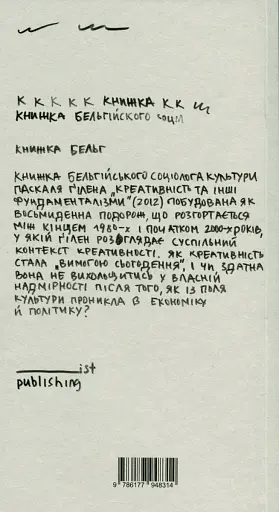 К К К К К КНИЖКА К К Ш
КНИЖКА БЕЛЬГІЙСКОГО СОЦІЛ
КНИЖКА БЕЛЬГ
КНИЖКА БЕЛЬГІЙСЬКОГО СОЦІОЛОГА КУЛЬТУРИ
ПАСКАЛЯ ҐІЛЕНА „КРЕАТИВНІСТЬ ТА ІНШІ
ФУНДАМЕНТАЛІЗМИ" (2012) ПОБУДОВАНА ЯК
ВОСЬМИДЕННА ПОДОРОЖ, ЩО РОЗГОРТАЄТЬСЯ
МІЖ КІНЦЕМ 1980-Х І ПОЧАТКОМ 2000-Х РОКІВ,
У ЯКІЙ ҐІЛЕН РОЗГЛЯДАЄ СУСПІЛЬНИЙ
КОНТЕКСТ КРЕАТИВНОСТІ. ЯК КРЕАТИВНІСТЬ
СТАЛА „ВИМОГОЮ СЬОГОДЕННЯ", І ЧИ ЗДАТНА
ВОНА НЕ ВИХОЛОЩИТИСЬ У ВЛАСНІЙ
НАДМІРНОСТІ ПІСЛЯ ТОГО, ЯК ІЗ ПОЛЯ
КУЛЬТУРИ ПРОНИКЛА В ЕКОНОМІКУ
Й ПОЛІТИКУ?
ist
publishing
9 786177 948314